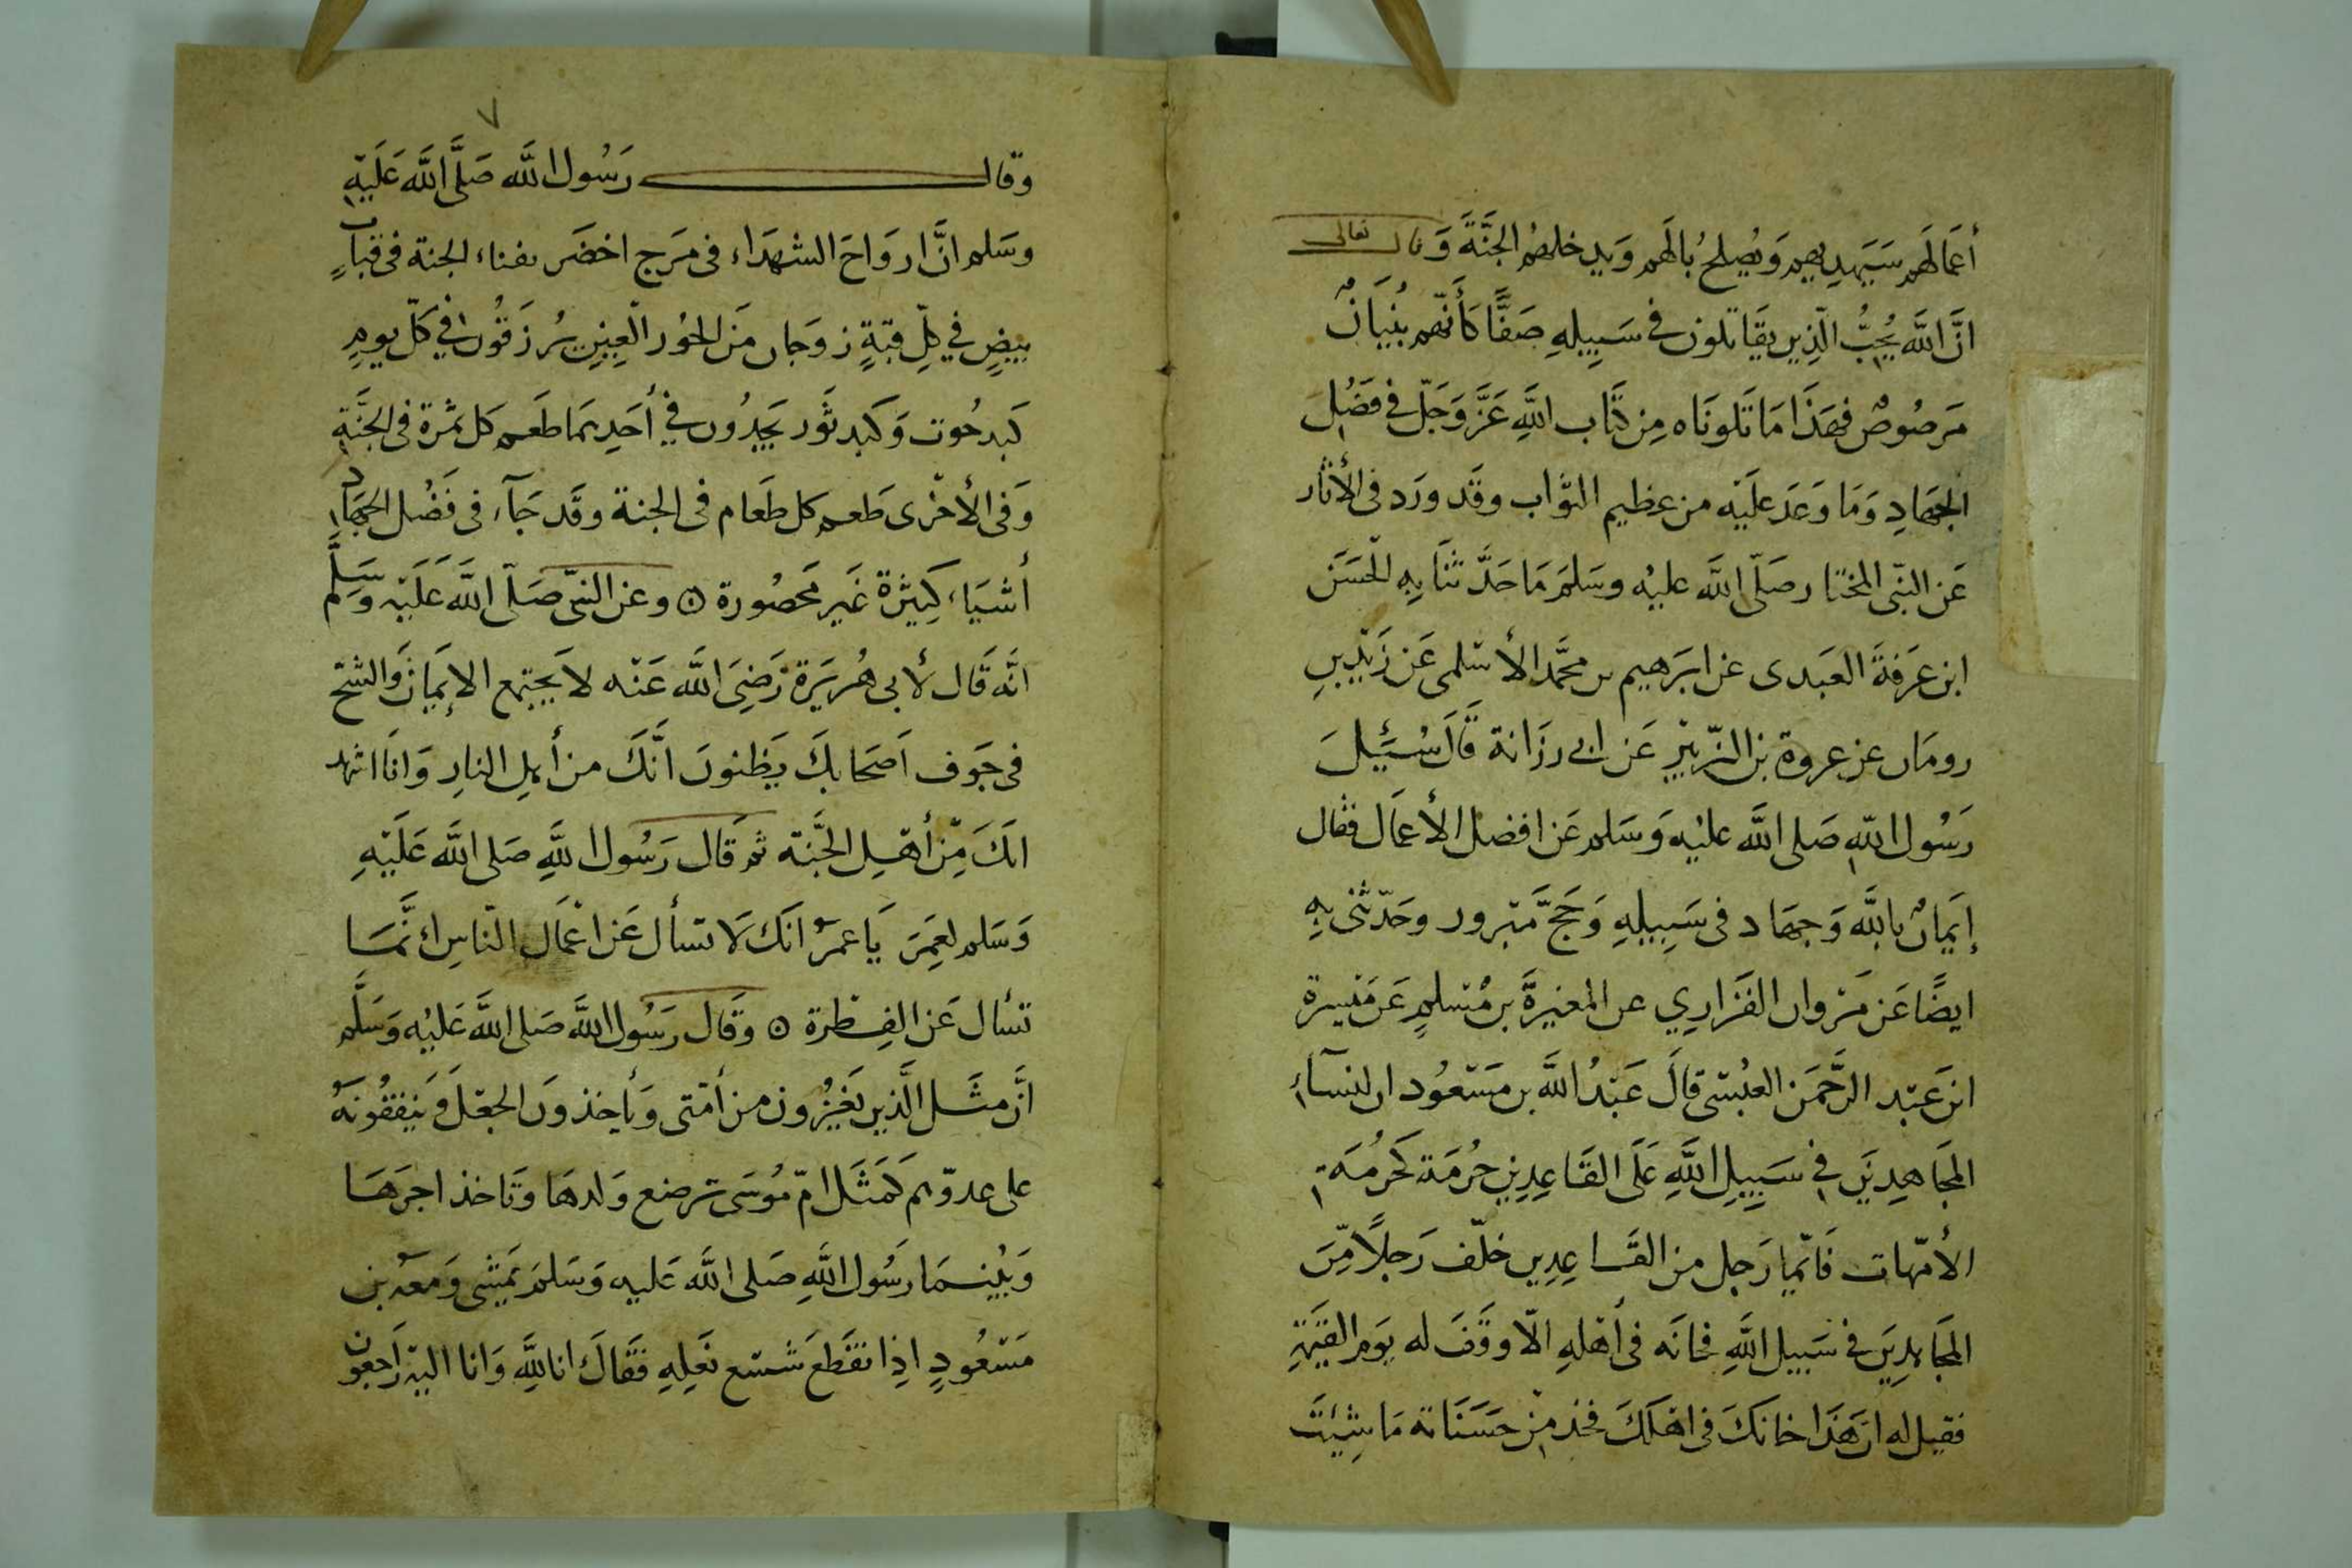 أعَمَالَهم سَيَهدِيهم وَيُصلحُ بالَهم وَيدخلهُم الجَنَّةَ وَقال تعالى
انَّ اللَّه يُحِبُّ الّذِين يقَاتلون في سَبِيلهِ صَفًّا كَأَنّهم بُنيَانٌ
مَرصُوصٌ فهَذَا مَا تَلونَاه مِن كتَاب اللَّهِ عَزَّ وَجَلّ في فَضْل
الجهَادِ وَمَا وَعَدَ علَيْه من عظيم الثّواب وقَد ورَد فى الأثَار
عَن النبّى المختار صَلّى اللَّه عليْه وسَلمَ مَا حَدَّثنَا بِهِ الحَسَن
ابن عَرَفةَ العَبَدى عن ابَرَهيم بن محمَّد الأسْلمى عَن زَيْد بنِ
رومَان عن عروة بن الزّبيْر عَن ابى رزَانة قَالَ سُئِلَ
رَسُول اللّهِ صَلى اللَّه عليْه وَسَلم عَن افضل الأعمَال فقال
إيَمانٌ باللَّه وَجهَاد فى سَبِيلهِ وَحَجّ مَبْرور وحَدّثنى بهِ
ايضًا عَن مَرْوان الفَزَارِي عن المغيرَةَ بن مُسْلمٍ عَن مَيْسرة
ابن عَبْد الرَّحمَن العبْسى قالَ عَبْدُ اللَّه بن مَسْعُود ان لنسَآء
المجَاهِدِيَن فى سَبِيلِ اللَّهِ عَلَى القَاعِدِين حُرمَة كَحُرمُة
الأمّهات فَأيّما رَجل من القَاعِدِين خلّف رَجلاً مّنَ
المجَاهدِيَن في سَبيل اللَّهِ فخانَه فى أهْلهِ الاّ وقَفَ له يوَم القيَمَةِ
فقيل له انّ هَذَا خانكَ فى اهْلكَ فخذ مِنْ حَسَنَاته مَا شِئتَ
٧
وقال رَسُول اللَّه صَلَّى اللَّه عَلَيْهِ
وسَلم انَّ ارَوَاحَ الشهَدَاء فى مَرَج اخضَر بفناء الجنة فى قبابٍ
بيضٍ في كلِّ قبّةٍ زوَجَان مَن الحُور الْعِينِ يُرزَقُون في كلّ يومٍ
كَبد حُوت وَكَبد ثَور يَجدُون في أحَدِهمَا طَعم كل ثمْرة فى الجَنَّةِ
وَفى الأخْرى طَعم كل طَعَام فى الجنة وقَد جَآء فى فَضْل الجهَادِ
أشيَاء كَثِيْرة غَير مَحصُورة ⊙ وعن النبىّ صَلّى اللَّه عَلَيْه وَسَلَّم
انَّه قَال لأبى هُريَرَة رَضِىَ اللَّه عَنْه لا يَجتمع الإيَمان وَالشحّ
فى جَوف اَصحَابكَ يَظنونَ انَّكَ من أهلِ النارِ وَانَا اشهد
انكَ مِّن أهْل الجَّنة ثم قَال رَسُول اللَّهِ صَلى اللَّه عَلَيْهِ
وَسَلم لعمَرَ يَا عمرُ انَكَ لَا تسأل عَن اعْمَال النّاسِ انَّمَا
تسأل عَن الفِطْرة ⊙ وقَال رَسُول اللَّه صَلى اللَّه عَليْه وَسَلَّم
انَّ مثَل الَّذين يَغْزُون من أمّتى وَيأخذونَ الجعْلَ وَيَنفقُونَهُ
على عدوّهم كَمثَل امّ مُوسَى ترضع وَلدهَا وتَاخذ اجرَهَا
وَبيْنمَا رَسُول اللَّهِ صَلى اللَّه عَليه وَسَلمَ يَمشى وَمعَهُ بن
مَسْعُودٍ اذِا نقَطعَ شسْع نَعلِهِ فقَالَ انا للَّهِ وَانا اليْه رَاجعون